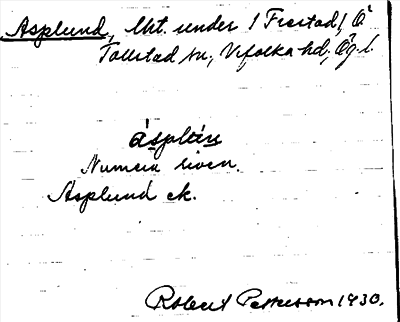 Asplund, lht. under 1 Frestad, Ö
Tollstad sn, Vifolka hd, Ög.l.
ásplún
Numera riven.
Asplund ek.
Robert Pettersson 1930.